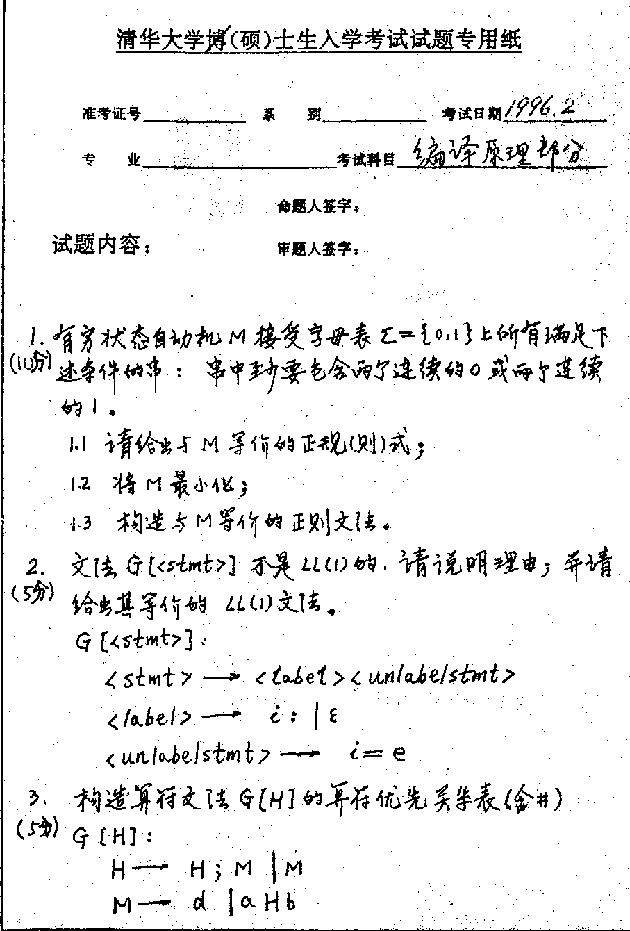 清华大学博(硕)士生入学考试试题专用纸
准考证号 系 别 考试日期 1996.2
专 业 考试科目 编译原理部分
命题人签字:
试题内容: 审题人签字:
1. 有穷状态自动机M接受字母表Σ={0,1}上所有满足下
(11分) 述条件的串: 串中至少要包含两个连续的0或两个连续
的1。
1.1 请给出与M等价的正规(则)式;
1.2 将M最小化;
1.3 构造与M等价的正则文法。
2. 文法G[<stmt>]不是LL(1)的,请说明理由;并请
(5分) 给出其等价的LL(1)文法。
G[<stmt>]:
<stmt> → <label><unlabelstmt>
<label> → i: | ε
<unlabelstmt> → i=e
3. 构造算符文法G[H]的算符优先关系表(含#)
(5分) G[H]:
H → H;M | M
M → d | aHb